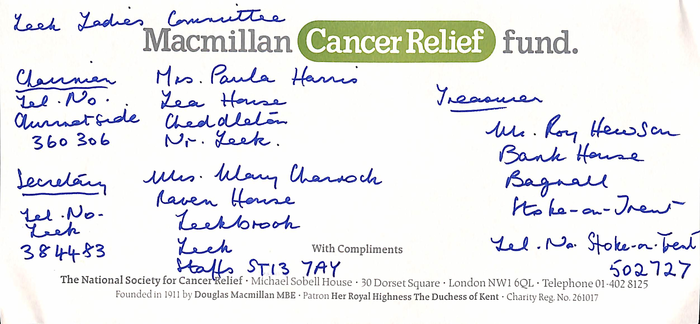 Leek Ladies Committee
Macmillan Cancer Relief fund.
Chairman Mrs. Paula Harris
Tel. No. Lea House
Churnetside Cheddleton
360 306 Nr. Leek.
Secretary Mrs. Mary Charnock
Raven House
Tel. No. Leekbrook
Leek Leek
384483 Staffs ST13 7AY
Treasurer
Mr. Roy Hewson
Bank House
Bagnall
Stoke-on-Trent
Tel. No. Stoke-on-Trent
502727
With Compliments
The National Society for Cancer Relief · Michael Sobell House · 30 Dorset Square · London NW1 6QL · Telephone 01-402 8125
Founded in 1911 by Douglas Macmillan MBE · Patron Her Royal Highness The Duchess of Kent · Charity Reg. No. 261017